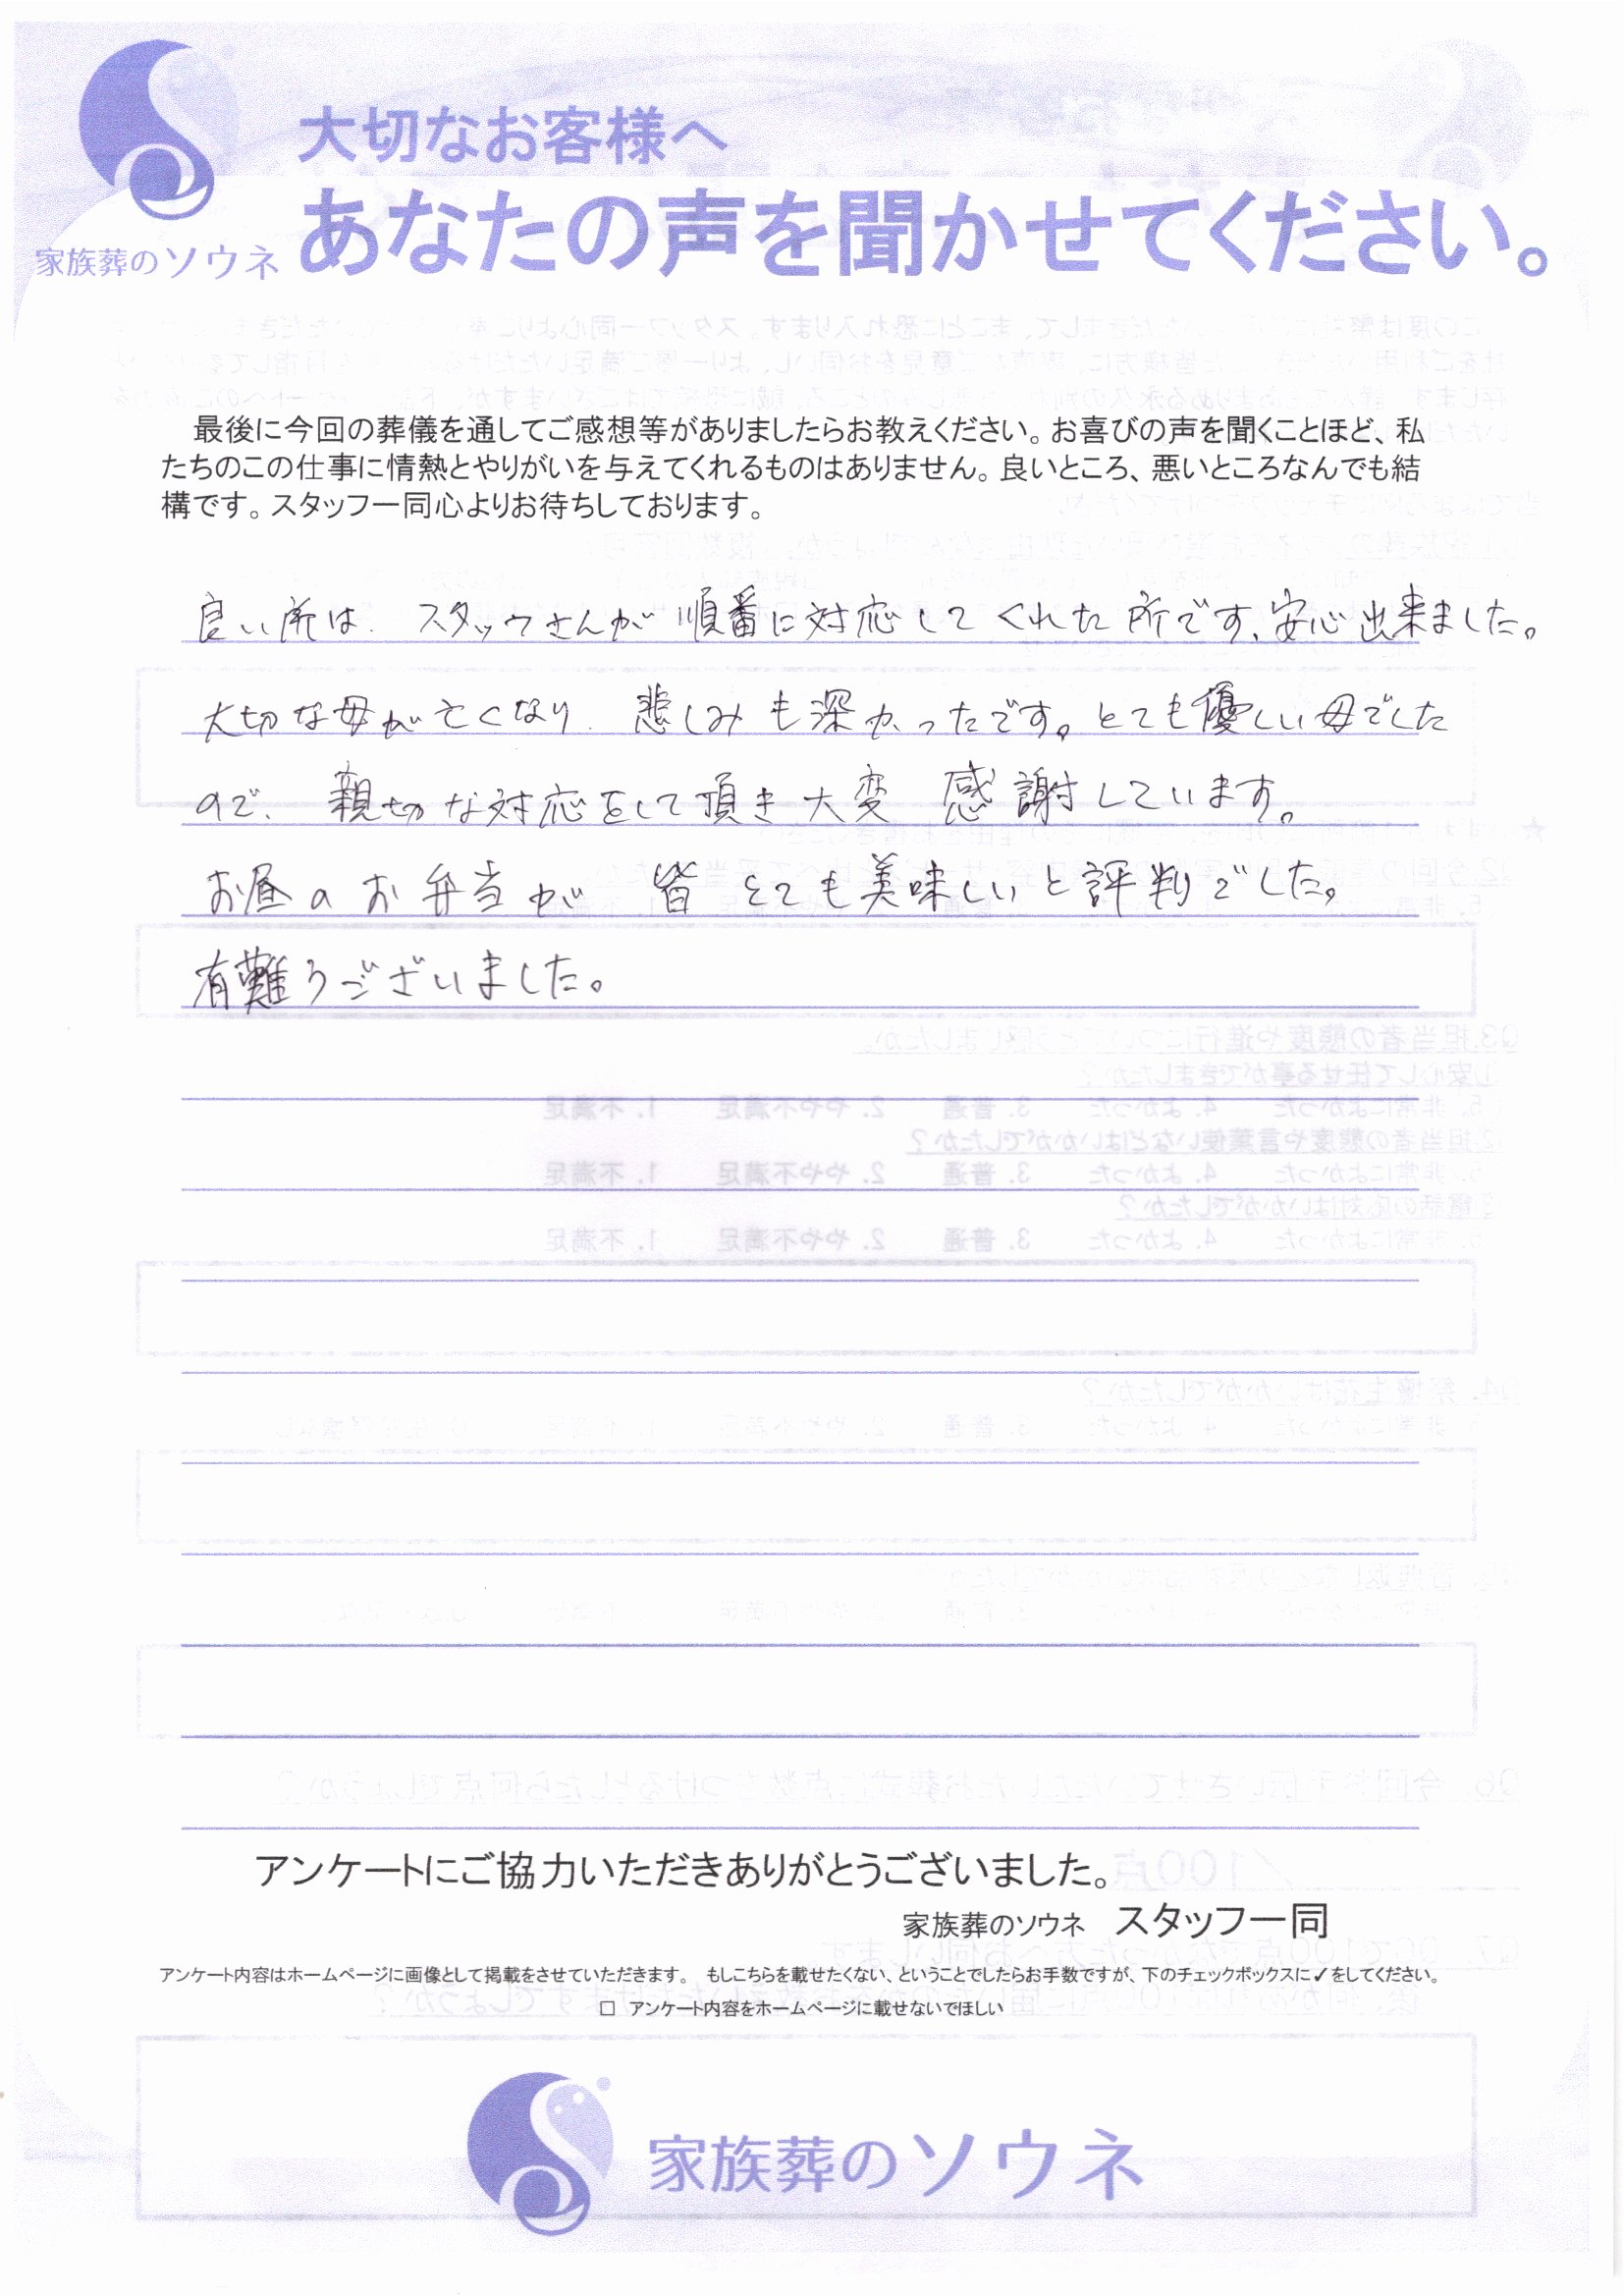 大切なお客様へ
あなたの声を聞かせてください。
家族葬のソウネ
最後に今回の葬儀を通してご感想等がありましたらお教えください。お喜びの声を聞くことほど、私
たちのこの仕事に情熱とやりがいを与えてくれるものはありません。良いところ、悪いところなんでも結
構です。スタッフ一同心よりお待ちしております。
良い所は、スタッフさんが順番に対応してくれた所です、安心出来ました。
大切な母が亡くなり、悲しみも深かったです。とても優しい母でした
ので、親切な対応をして頂き大変感謝しています。
お昼のお弁当が皆とても美味しいと評判でした。
有難うございました。
アンケートにご協力いただきありがとうございました。
家族葬のソウネ スタッフ一同
アンケート内容はホームページに画像として掲載をさせていただきます。 もしこちらを載せたくない、ということでしたらお手数ですが、下のチェックボックスに✓をしてください。
□ アンケート内容をホームページに載せないでほしい
家族葬のソウネ